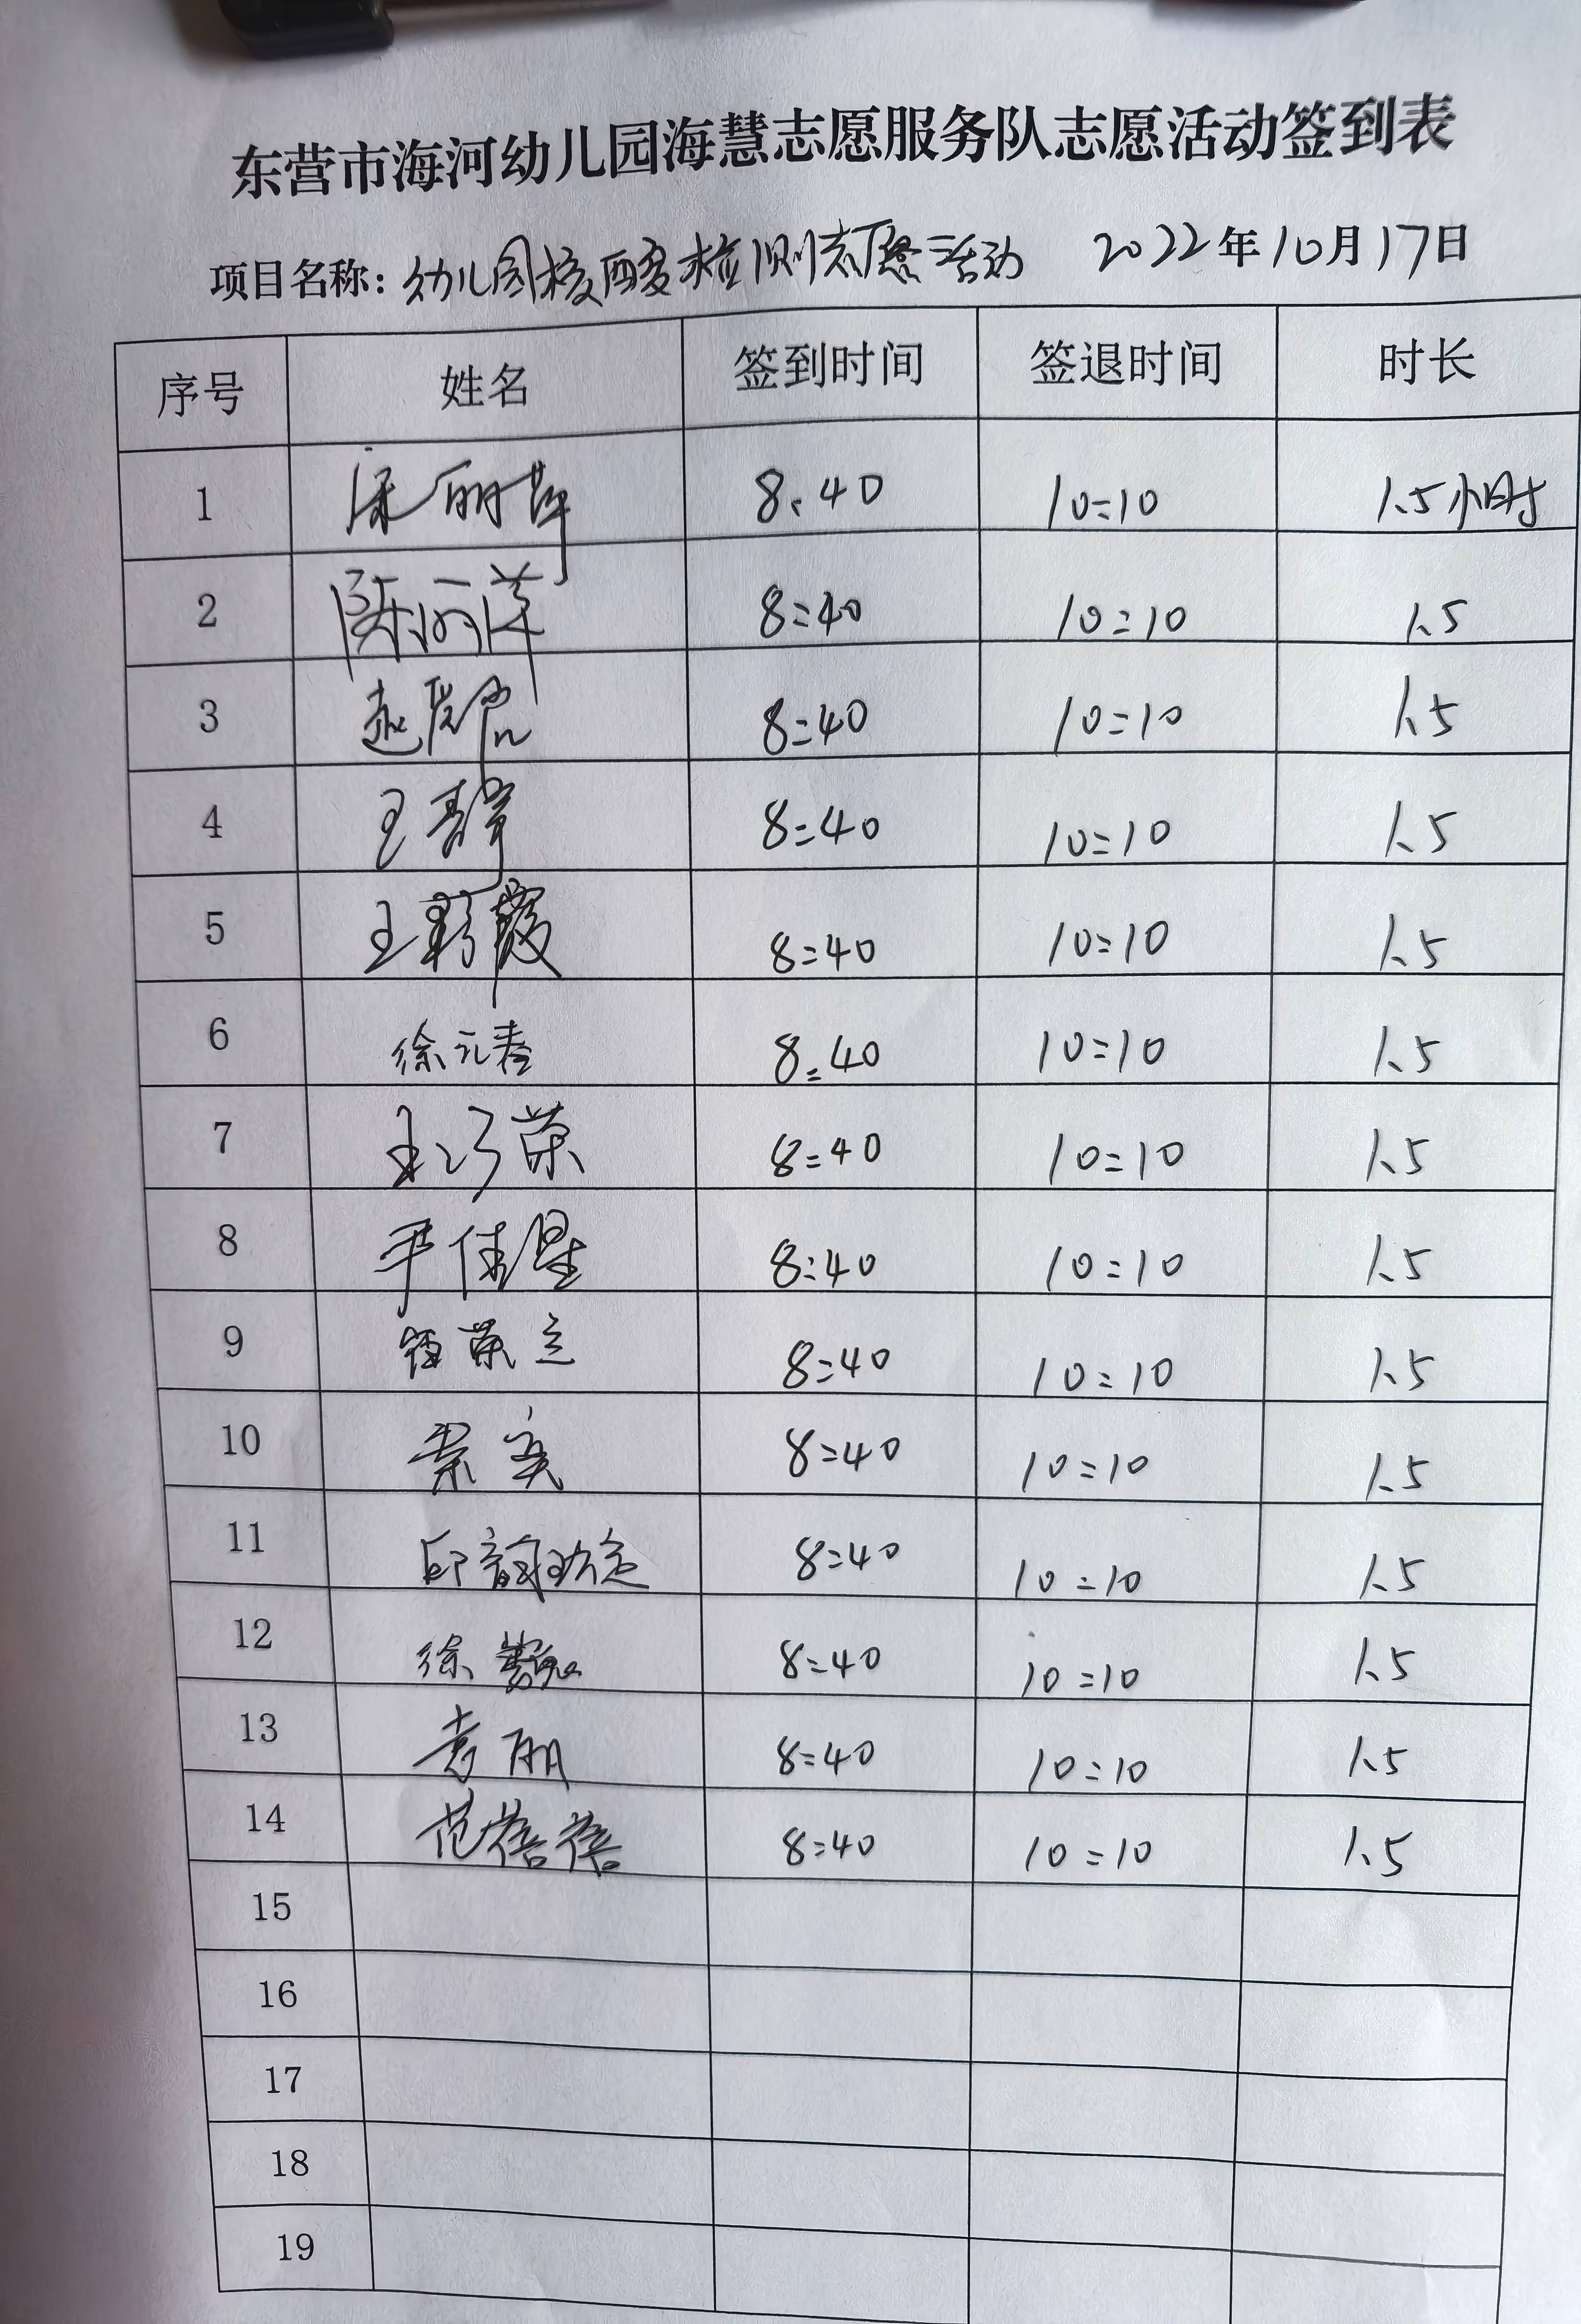 东营市海河幼儿园海慧志愿服务队志愿活动签到表
项目名称：幼儿园核酸检测志愿活动 2022年10月17日
序号 姓名 签到时间 签退时间 时长
1 8:40 10:10 1.5小时
2 8:40 10:10 1.5
3 8:40 10:10 1.5
4 王静 8:40 10:10 1.5
5 王彩霞 8:40 10:10 1.5
6 徐元春 8:40 10:10 1.5
7 王巧荣 8:40 10:10 1.5
8 尹佳星 8:40 10:10 1.5
9 8:40 10:10 1.5
10 8:40 10:10 1.5
11 8:40 10:10 1.5
12 徐 8:40 10:10 1.5
13 袁丽 8:40 10:10 1.5
14 范蓓蓓 8:40 10:10 1.5
15
16
17
18
19